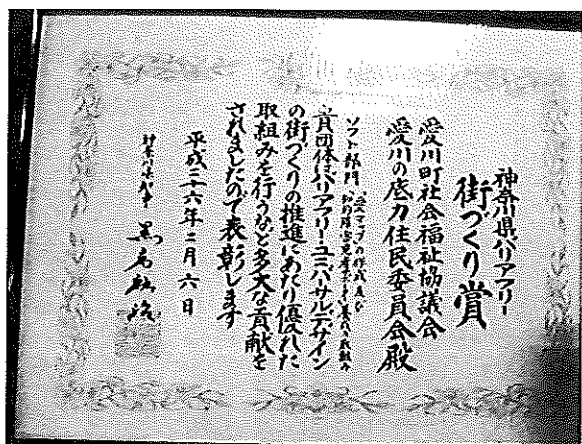 神奈川県バリアフリー
街づくり賞
愛川町社会福祉協議会
愛川の底力住民委員会殿
ソフト部門
貴団体はバリアフリー・ユニバーサルデザイン
の街づくりの推進にあたり優れた
取組みを行うなど多大な貢献を
されましたので表彰します
平成二十六年二月六日
神奈川県知事 黒岩祐治